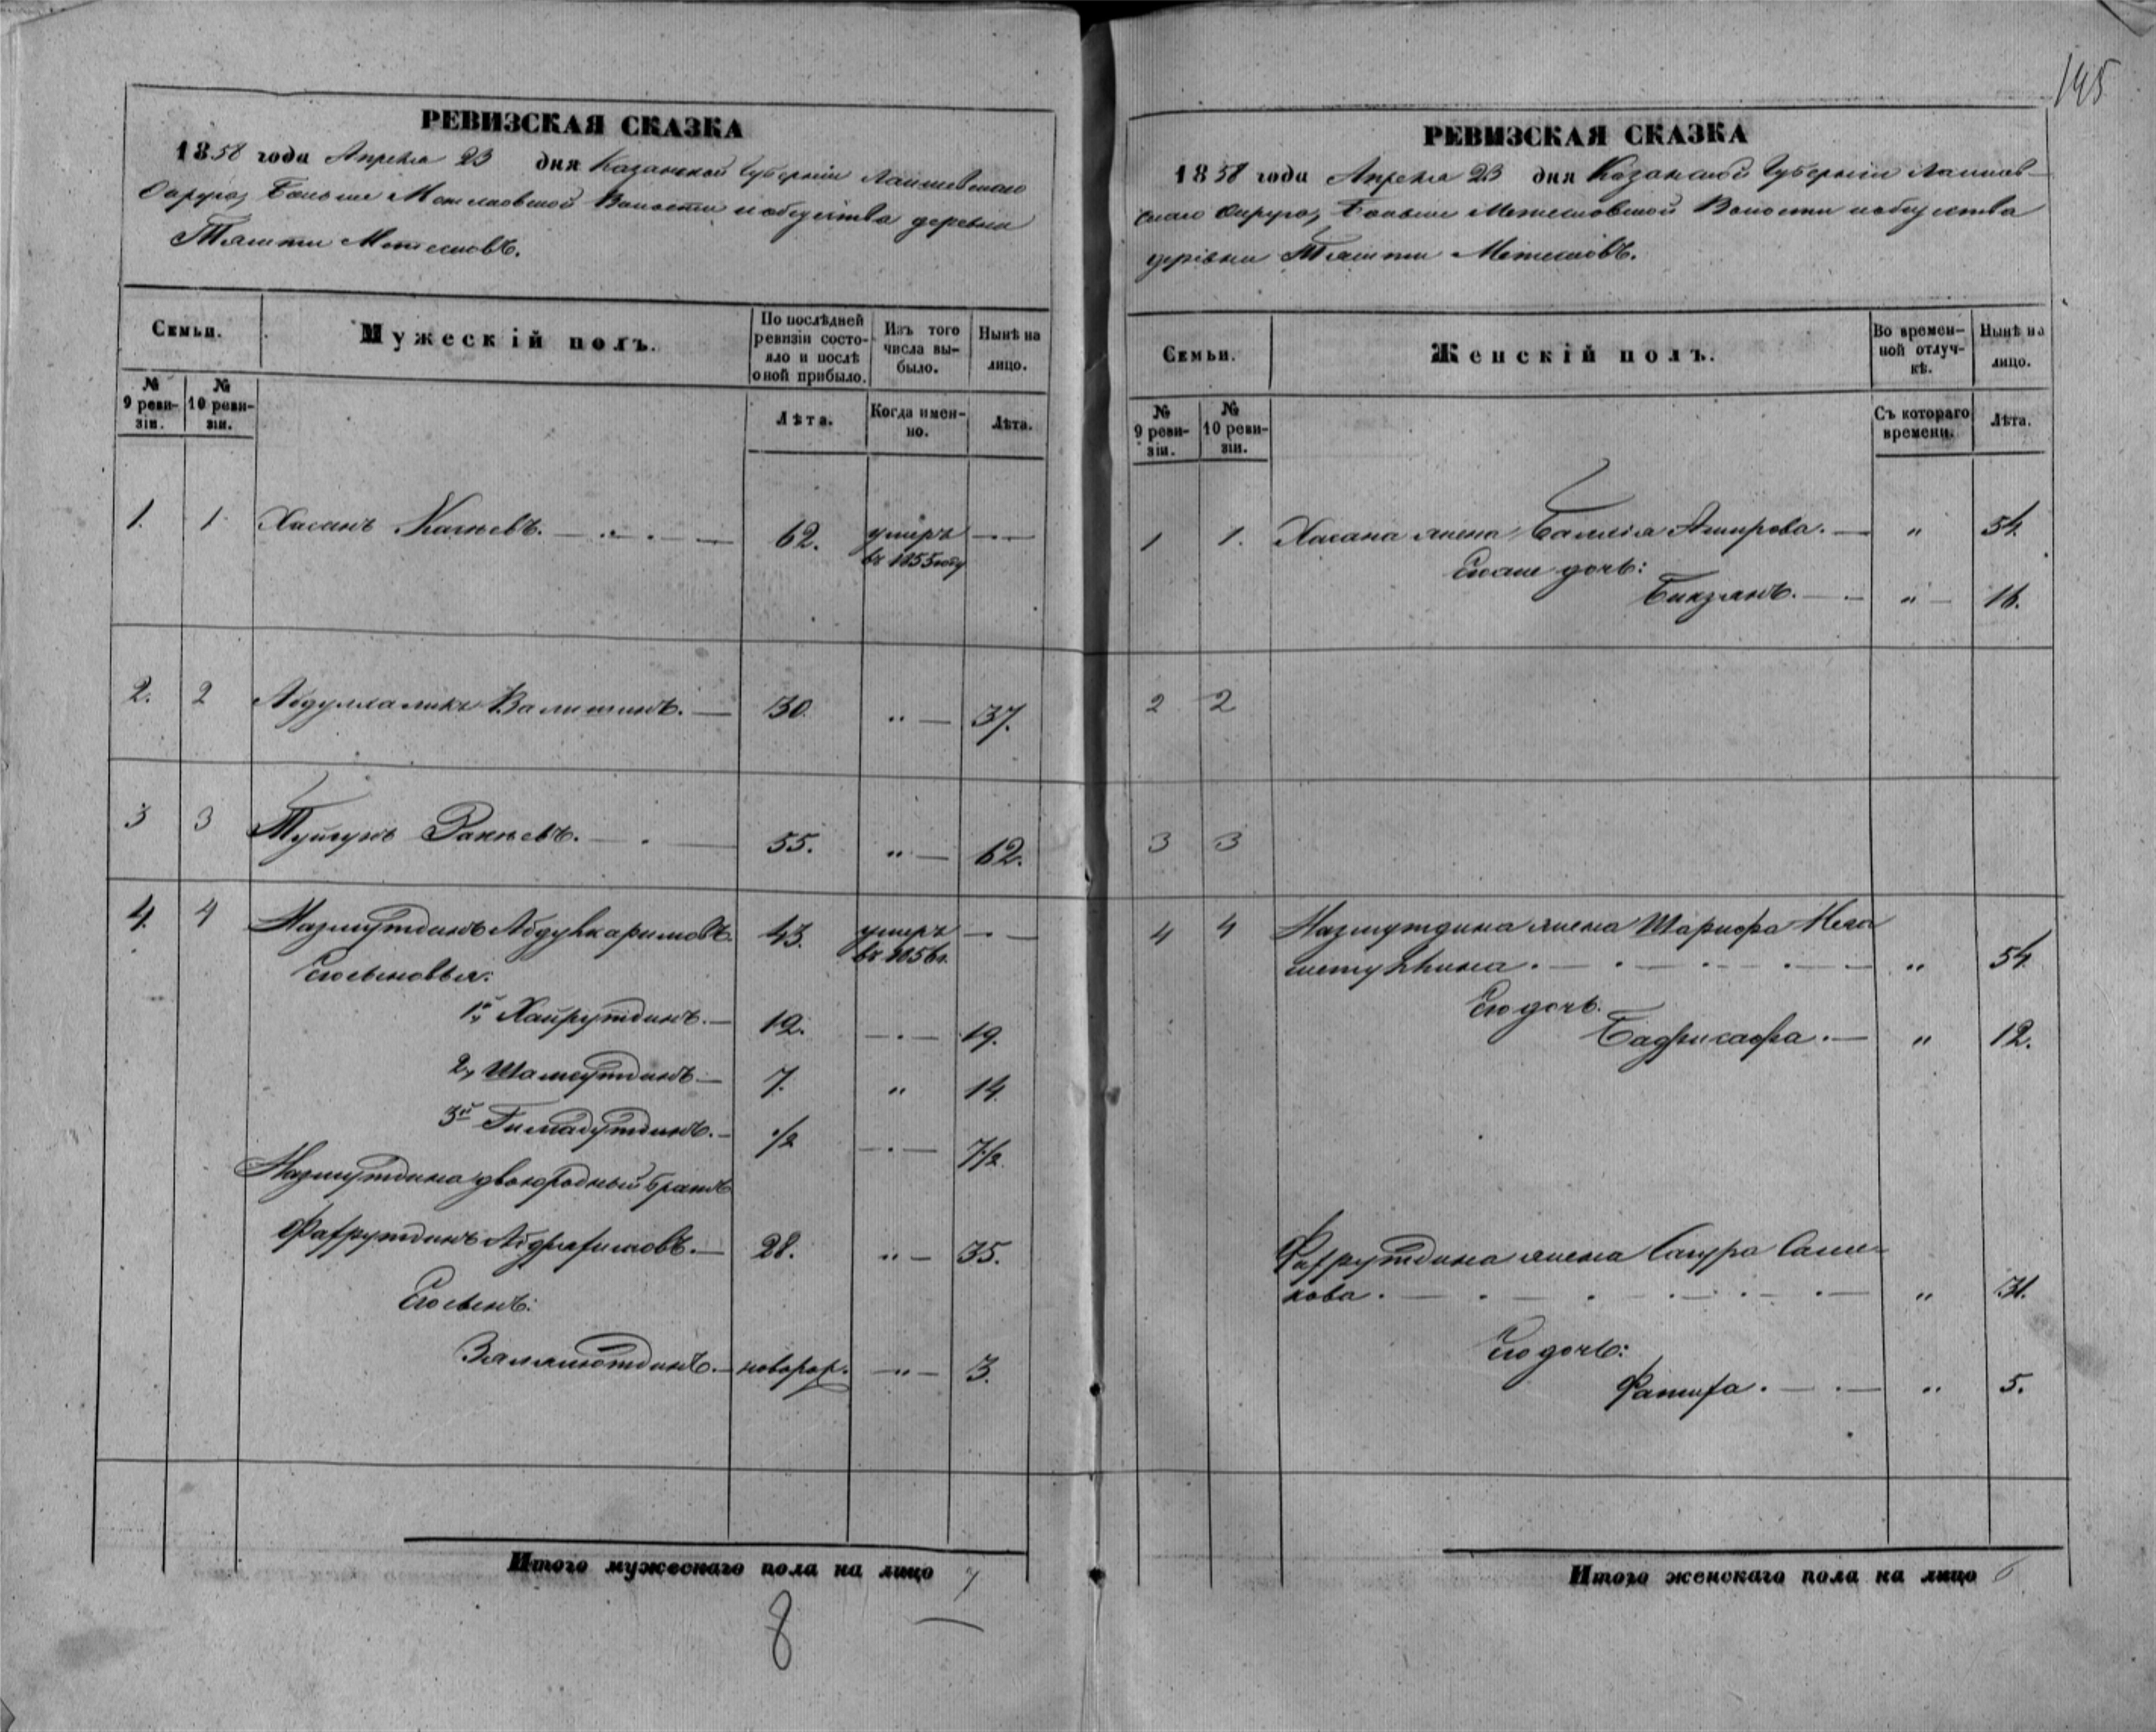 145
РЕВИЗСКАЯ СКАЗКА
1858 года Апреля 23 дня Казанской Губернiи Лаишевскаго
Округа, Больше Метесковской Волости и общества деревни
Тямти Метесковъ.
Семьи.
Мужескiй полъ.
По послѣдней
ревизiи состо-
яло и послѣ
оной прибыло.
Изъ того
числа вы-
было.
Нынѣ на
лицо.
№
9 реви-
зiи.
№
10 реви-
зiи.
Лѣта.
Когда имен-
но.
Лѣта.
1. 1 Хасанъ Кагѣевъ. 62. умеръ
въ 1855 году
2. 2 Абдулхаликъ Валишинъ. 30. „ 37.
3 3 Туйгунъ Ракѣевъ. 55. „ 62.
4. 4 Назмутдинъ Абдулкаримовъ. 43. умеръ
въ 1856 г.
Его сыновья:
1й Хайрутдинъ. 12. 19.
2й Шамсутдинъ 7. „ 14.
3й Гимадутдинъ. 1/2 7 1/2
Назмутдина двоюродный братъ
Фахрутдинъ 28. „ 35.
Его сынъ:
Зялялютдинъ. новорож. „ 3.
Итого мужескаго пола на лицо 7
8
РЕВИЗСКАЯ СКАЗКА
1858 года Апреля 23 дня Казанской Губернiи Лаишев-
скаго Округа, Больше Метесковской Волости и общества
деревни Тямти Метесковъ.
Семьи.
Женскiй полъ.
Во времен-
ной отлуч-
кѣ.
Нынѣ на
лицо.
№
9 реви-
зiи.
№
10 реви-
зiи.
Съ котораго
времени.
Лѣта.
1 1. Хасана жена Амирова. „ 54.
дочь:
„ 16.
2 2
3 3
4 4 Назмутдина жена Шарифа
„ 54
Его дочь:
Бадрисафа. „ 12.
Фахрутдина жена Сагура Сали-
хова. „ 31.
Его дочь:
Фатиха. „ 5.
Итого женскаго пола на лицо 6